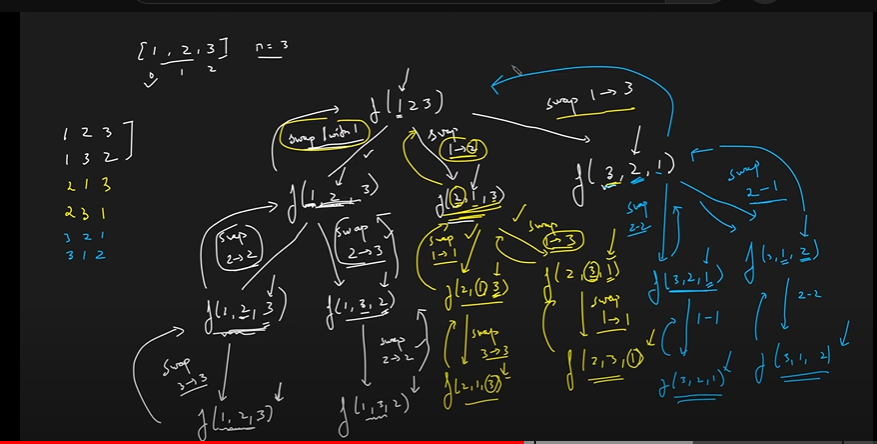 [1, 2, 3] n = 3
0 1 2
f(1 2 3)
swap 1 → 3
swap 1 with 1
swap
1→2
1 2 3
1 3 2
2 1 3
2 3 1
3 2 1
3 1 2
f(1, 2, 3)
f(2, 1, 3)
f(3, 2, 1)
swap
2→2
swap
2→3
swap
1→1
swap
1→3
swap
2-2
swap
2-1
f(1, 2, 3)
f(1, 3, 2)
f(2, 1, 3)
f(2, 3, 1)
f(3, 2, 1)
f(3, 1, 2)
swap
3→3
swap
2→2
swap
3→3
swap
1→1
1-1
2-2
f(1, 2, 3)
f(1, 3, 2)
f(2, 1, 3)
f(2, 3, 1)
f(3, 2, 1)
f(3, 1, 2)